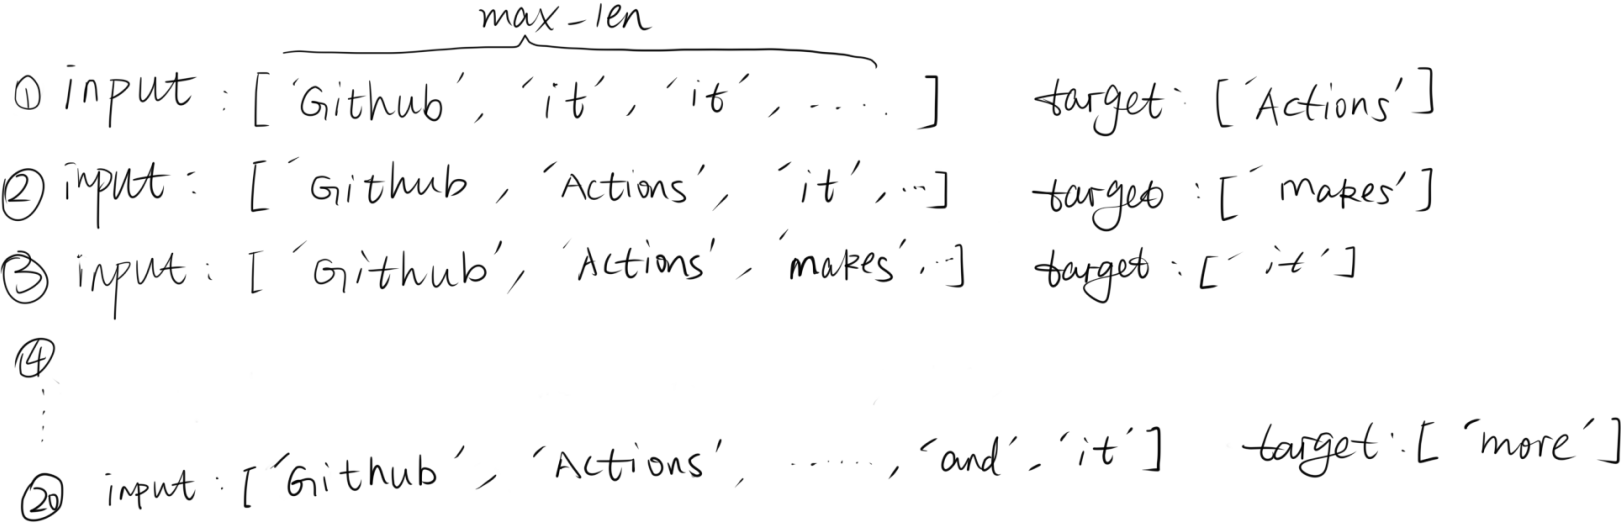 max-len
① input : [ 'Github', 'it', 'it', ..... ] target: ['Actions']
② input : [ 'Github , 'Actions', 'it', ...] target : [ 'makes']
③ input : [ 'Github', 'Actions', 'makes', ..] target : [ 'it']
④
⑳ input : ['Github', 'Actions', ......, 'and', 'it'] target : [ 'more']